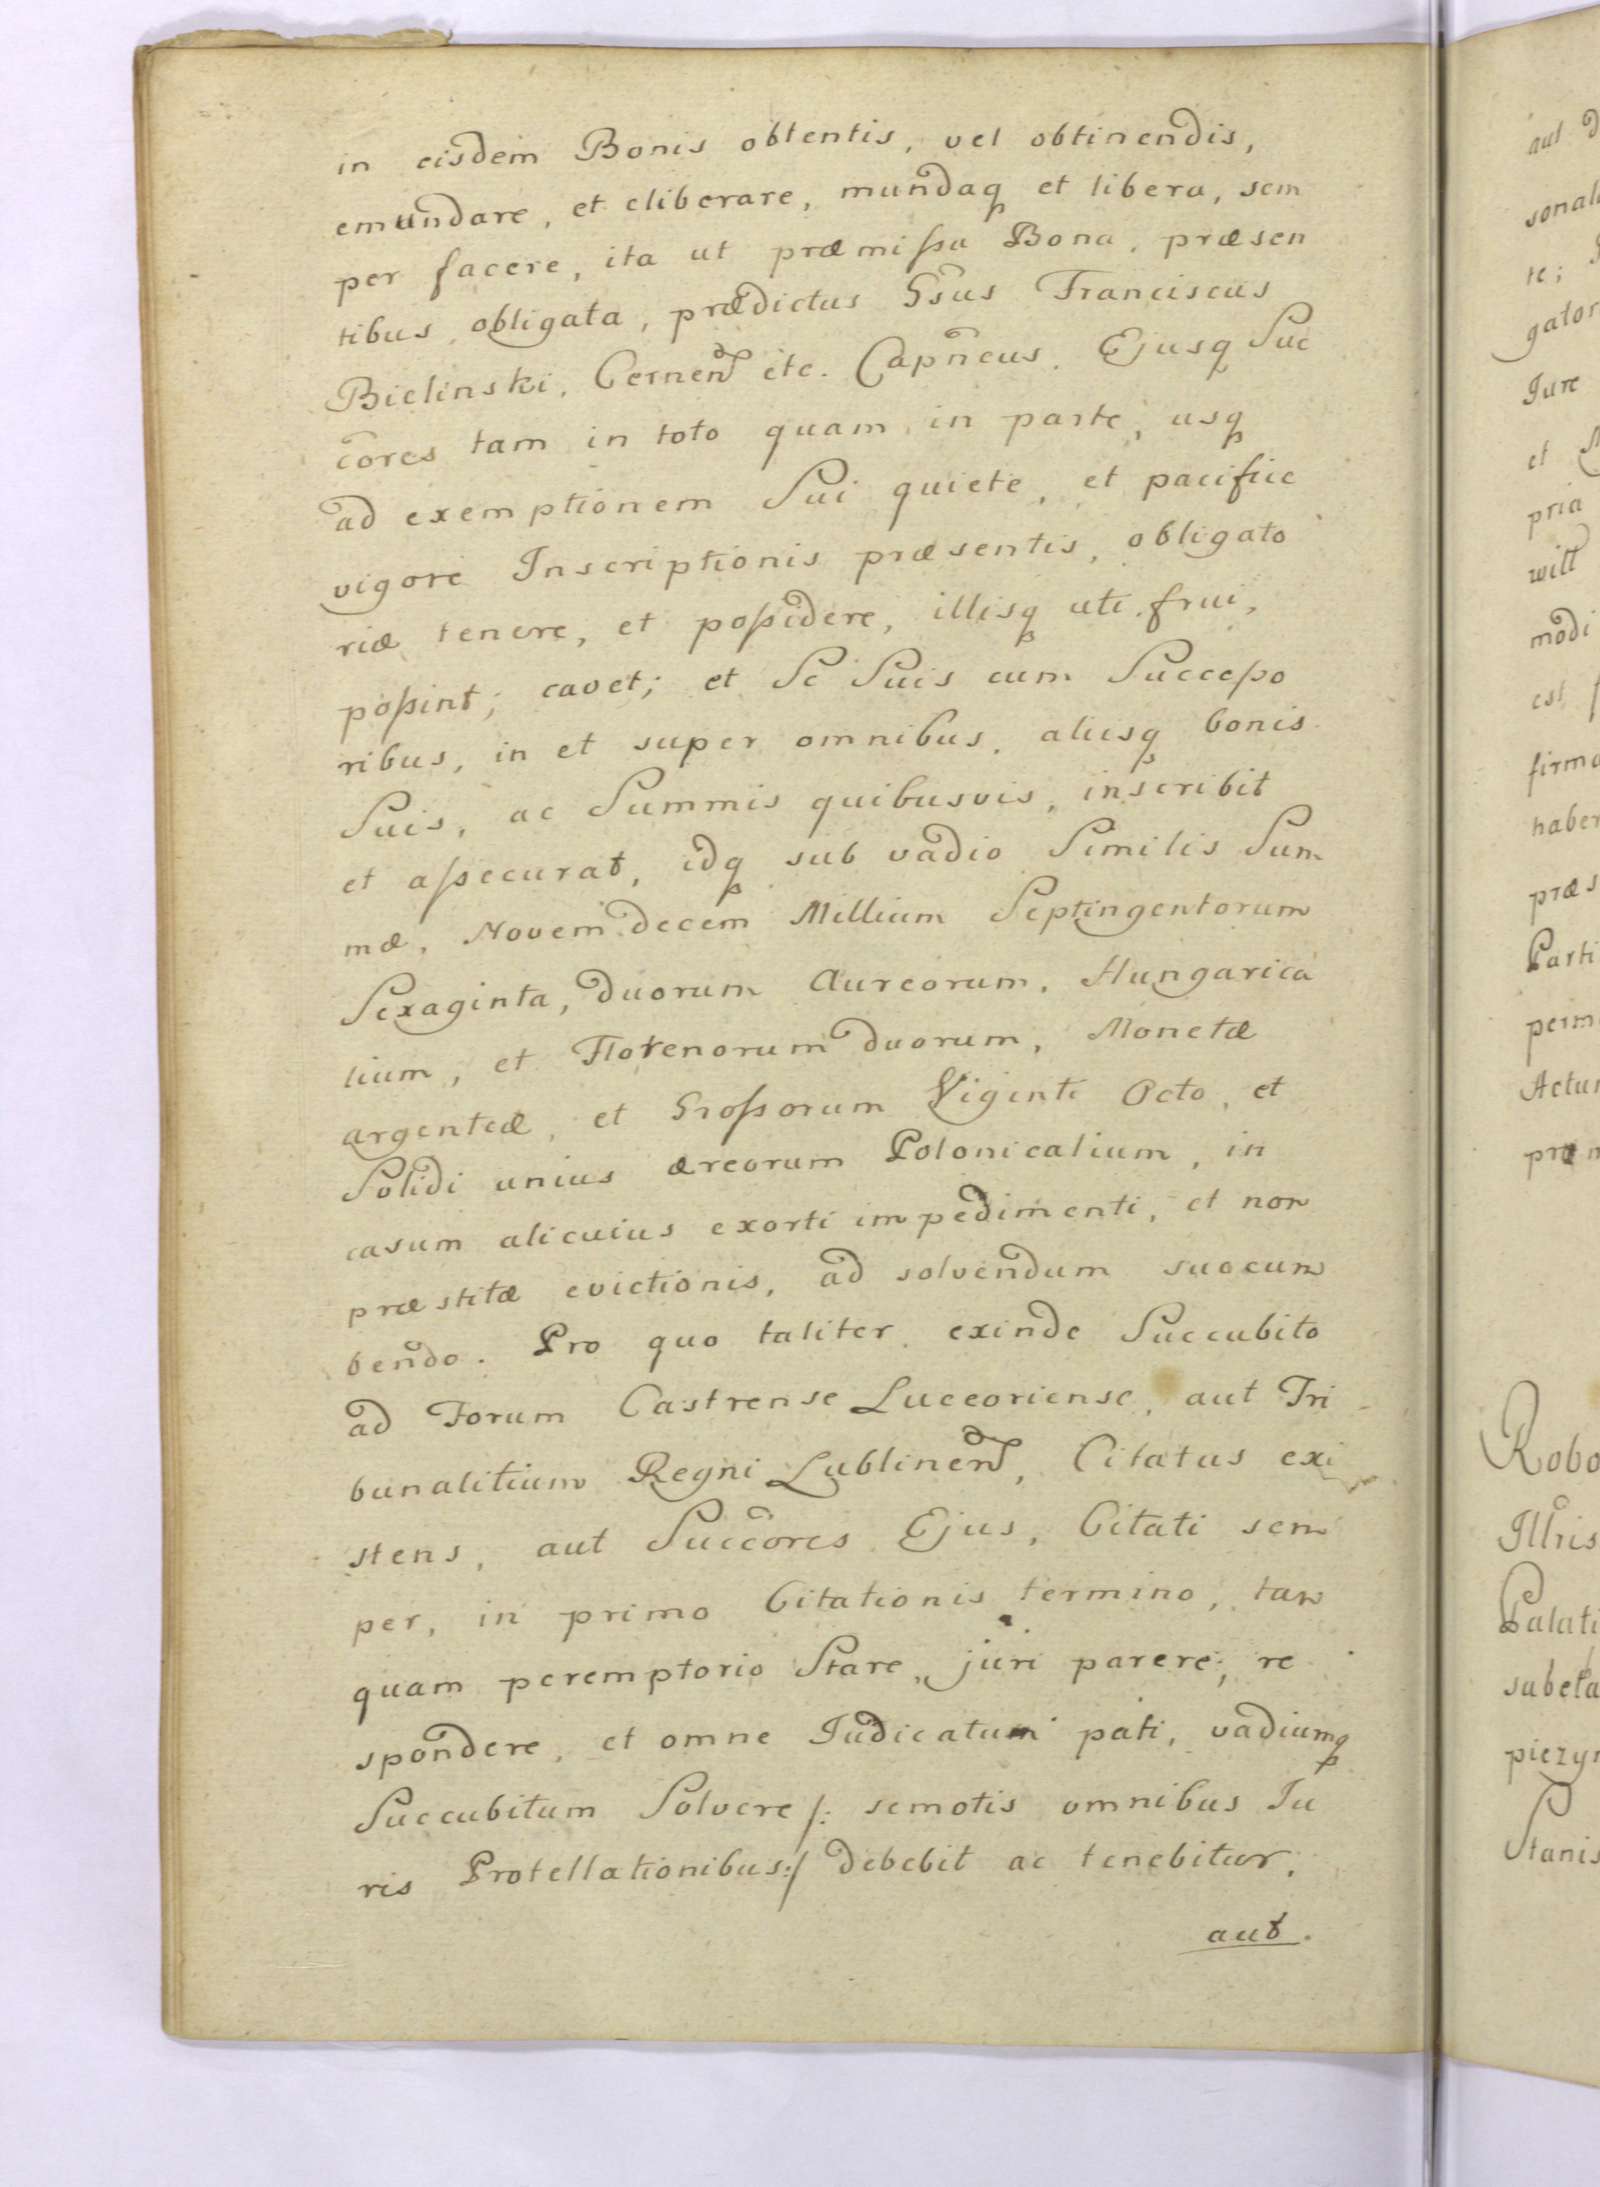 in eisdem Bonis obtentis, vel obtinendis,
emundare, et eliberare, mundaq et libera, sem
per facere, ita ut præmißa Bona, præsen
tibus obligata, prædictus Gsus Franciscus
Bielinski, Cernen etc. Capneus. Ejusq Suc
cores tam in toto quam in parte, usq
ad exemptionem Sui quiete, et pacifice
vigore Inscriptionis præsentis, obligato
riæ tenere, et poßidere, illisq uti frui,
poßint; cavet; et Se Suis cum Succeßo
ribus, in et super omnibus, aliisq bonis
Suis, ac Summis quibusvis, inscribit
et aßecurat, idq sub vadio Similis Sum
mæ, Novem decem Millium Septingentorum
Sexaginta, duorum Aureorum, Hungarica
lium, et Florenorum duorum, Monetæ
argenteæ, et Großorum Viginti Octo, et
Solidi unius æreorum Polonicalium, in
casum alicuius exorti impedimenti, et non
præstitæ evictionis, ad solvendum succum
bendo. Pro quo taliter exinde Succubito
ad Forum Castrense Luceoriense, aut Tri
bunalitium Regni Lublinen, Citatus exi
stens, aut Succores Ejus, Citati sem
per, in primo Citationis termino, tan
quam peremptorio Stare, juri parere, re
spondere, et omne Iudicatum pati, vadiumq
Succubitum Solvere /: semotis omnibus Iu
ris Protellationibus :/ debebit ac tenebitur,
aut.
aut
te;
Iure
et
pria
modi
est
Parti
Robo
Illris
Palati
Stanis